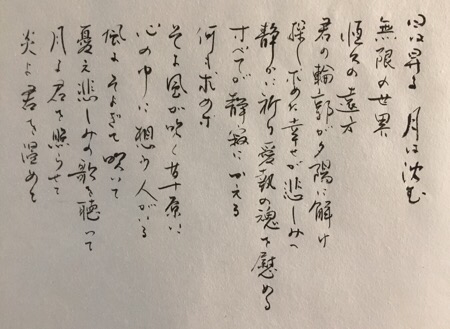 日は昇る 月は沈む
無限の世界
恒久の遠方
君の輪郭が夕陽に解け
探し求めた幸せが悲しみへ
静かに祈り愛執の魂を慰める
すべてが静寂にかえる
何も求めず
そよ風が吹く草原に
心の中に想う人がいる
風よそよぎて吹いて
憂え悲しみの歌を聴って
月よ君を照らせて
炎よ君を温めて